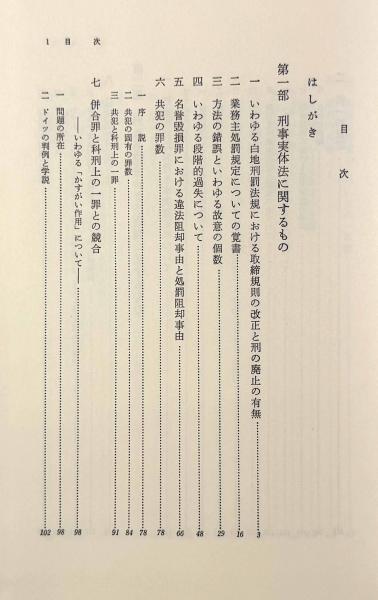 目次
はしがき
第一部 刑事実体法に関するもの
一 いわゆる白地刑罰法規における取締規則の改正と刑の廃止の有無……3
二 業務主処罰規定についての覚書……16
三 方法の錯誤といわゆる故意の個数……29
四 いわゆる段階的過失について……48
五 名誉毀損罪における違法阻却事由と処罰阻却事由……66
六 共犯の罪数……78
一 序説……78
二 共犯の固有の罪数……84
三 共犯と科刑上の一罪……91
七 併合罪と科刑上の一罪との競合
――いわゆる「かすがい作用」について――……98
一 問題の所在……98
二 ドイツの判例と学説……102
目次 1